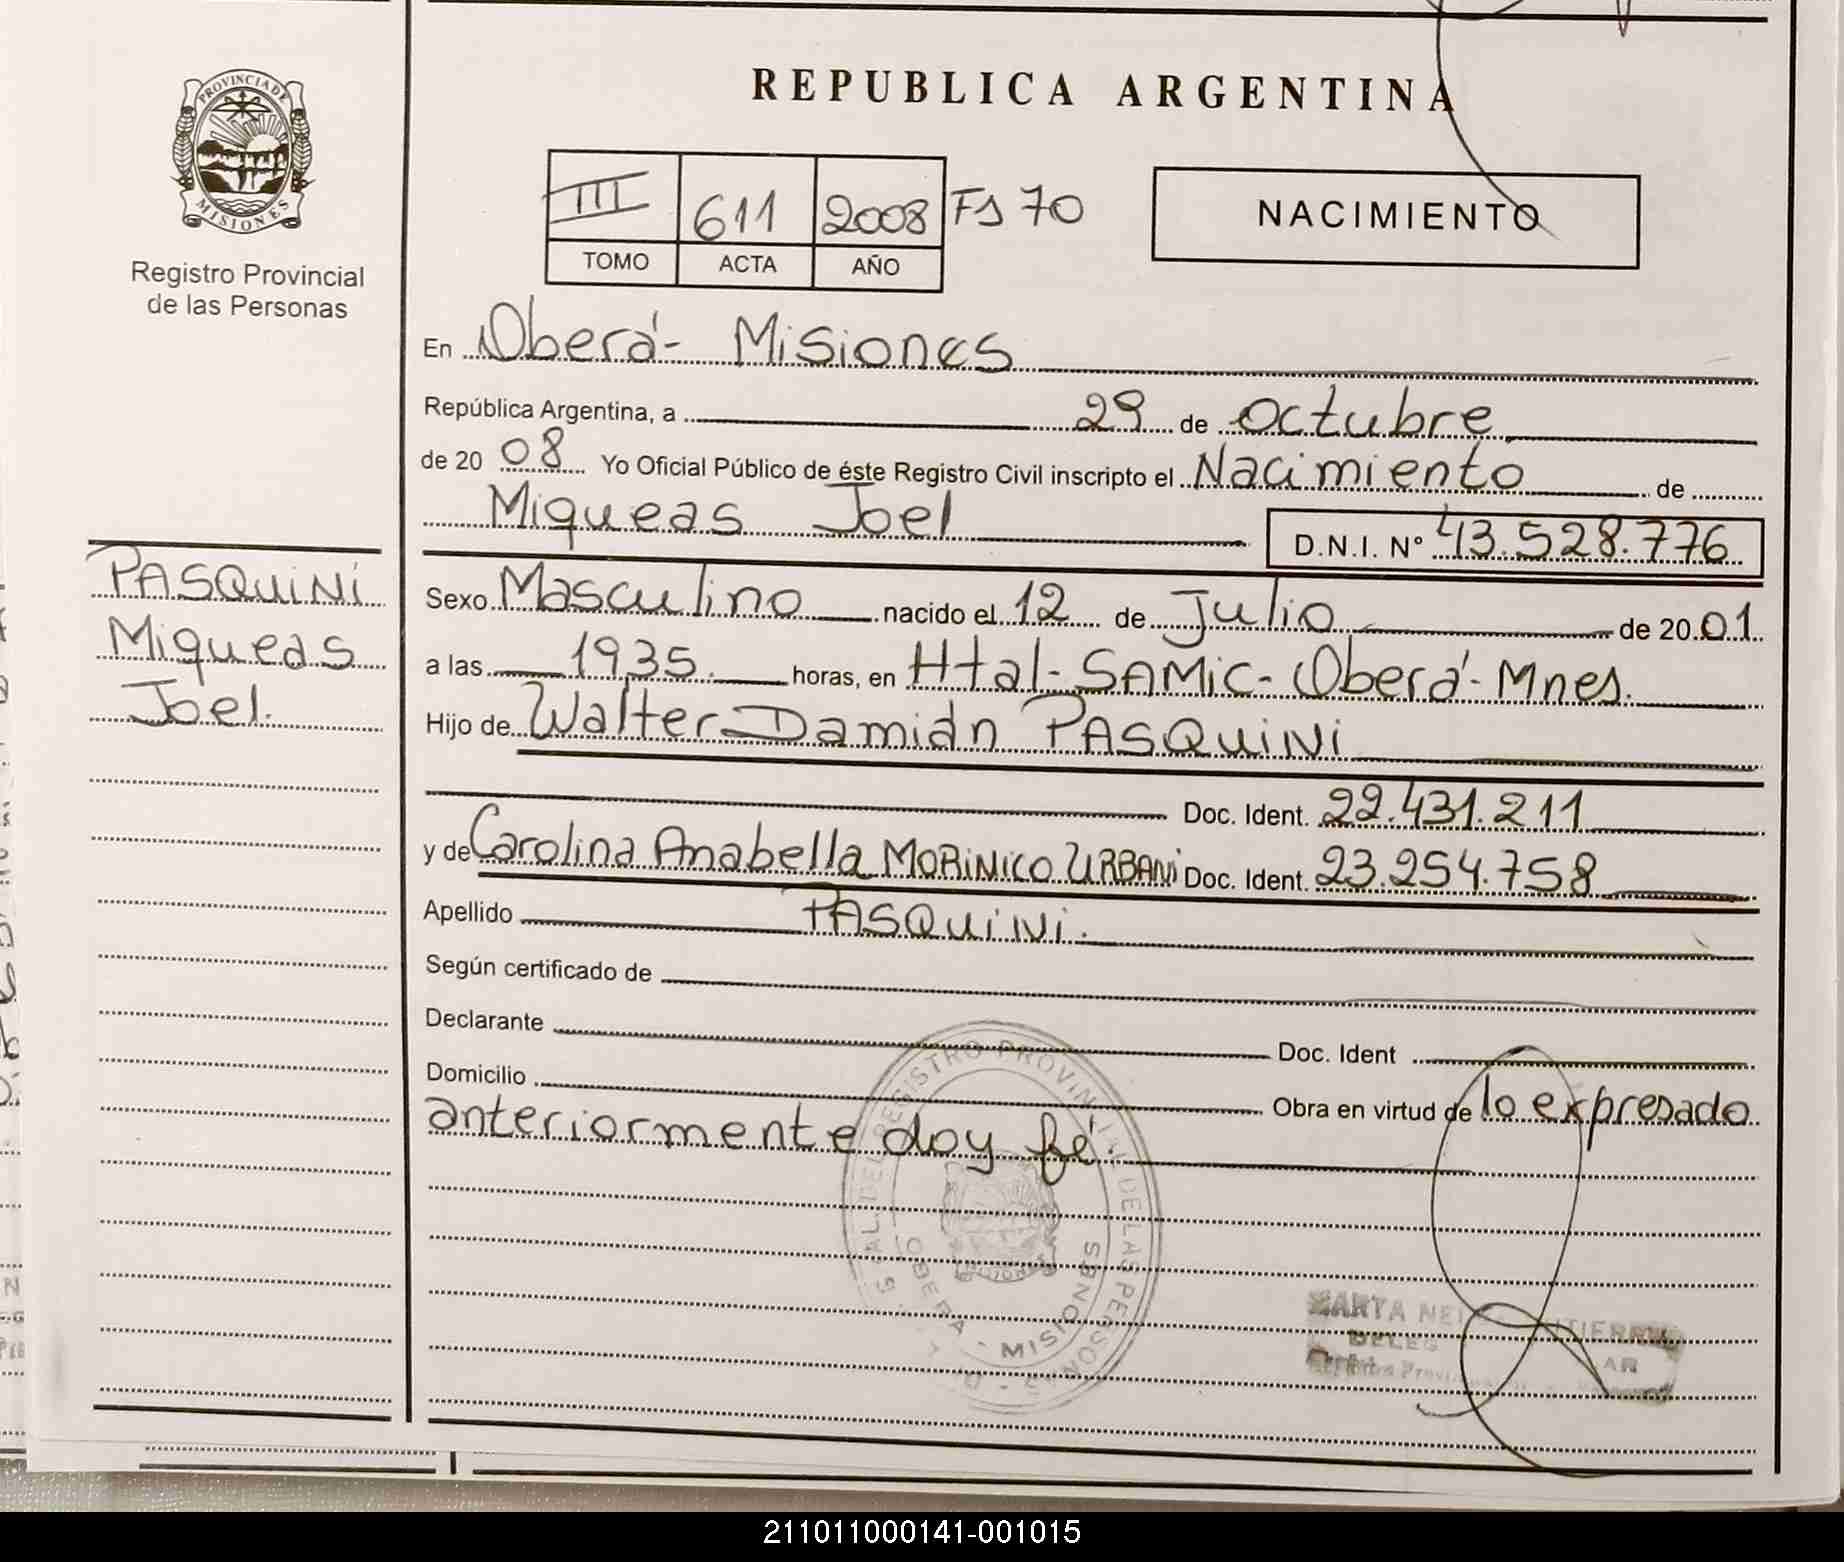 REPUBLICA ARGENTINA
PROVINCIA DE MISIONES
Registro Provincial
de las Personas
III 611 2008 Fs 70
TOMO ACTA AÑO
NACIMIENTO
En Oberá - Misiones
República Argentina, a 29 de Octubre
de 20 08 Yo Oficial Público de éste Registro Civil inscripto el Nacimiento de
Miqueas Joel D.N.I. N° 43.528.776
PASQUINI
Miqueas
Joel.
Sexo Masculino nacido el 12 de Julio de 20 01
a las 1935 horas, en Htal - SAMIC - Oberá - Mnes.
Hijo de Walter Damián PASQUINI
Doc. Ident. 22.431.211
y de Carolina Anabella MORINICO URBANI Doc. Ident. 23.254.758
Apellido PASQUINI.
Según certificado de
Declarante Doc. Ident
Domicilio Obra en virtud de lo expresado
anteriormente doy fé.
REGISTRO PROVINCIAL DE LAS PERSONAS
OBERA - MISIONES
MARTA
211011000141-001015